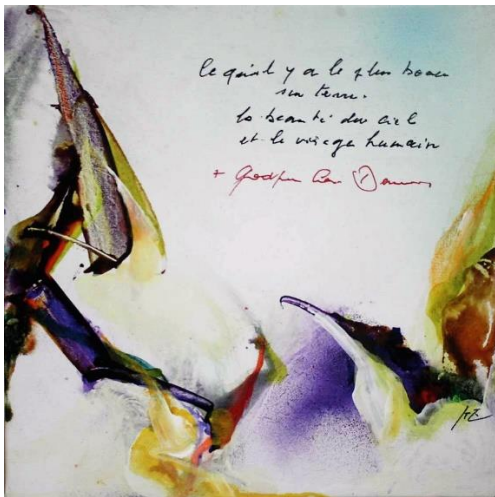 ce qu'il y a le plus beau
sur terre.
la beauté du ciel
et le visage humain
+ Godfried